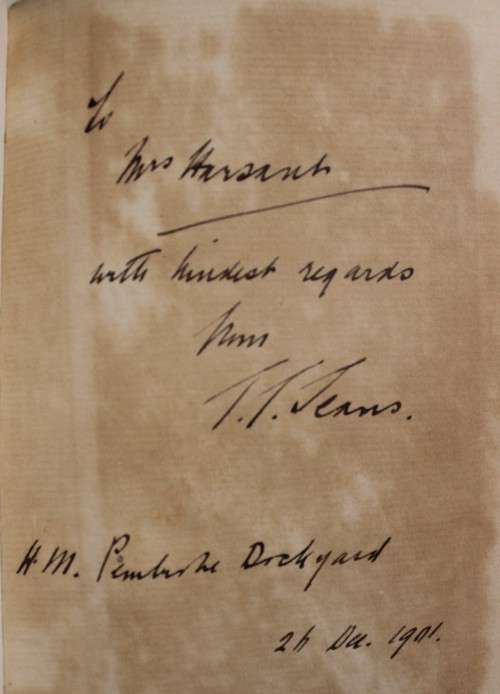 To
Mrs Harsant
with kindest regards
from
T. T. Jeans.
H.M. Pembroke Dockyard
Dec.